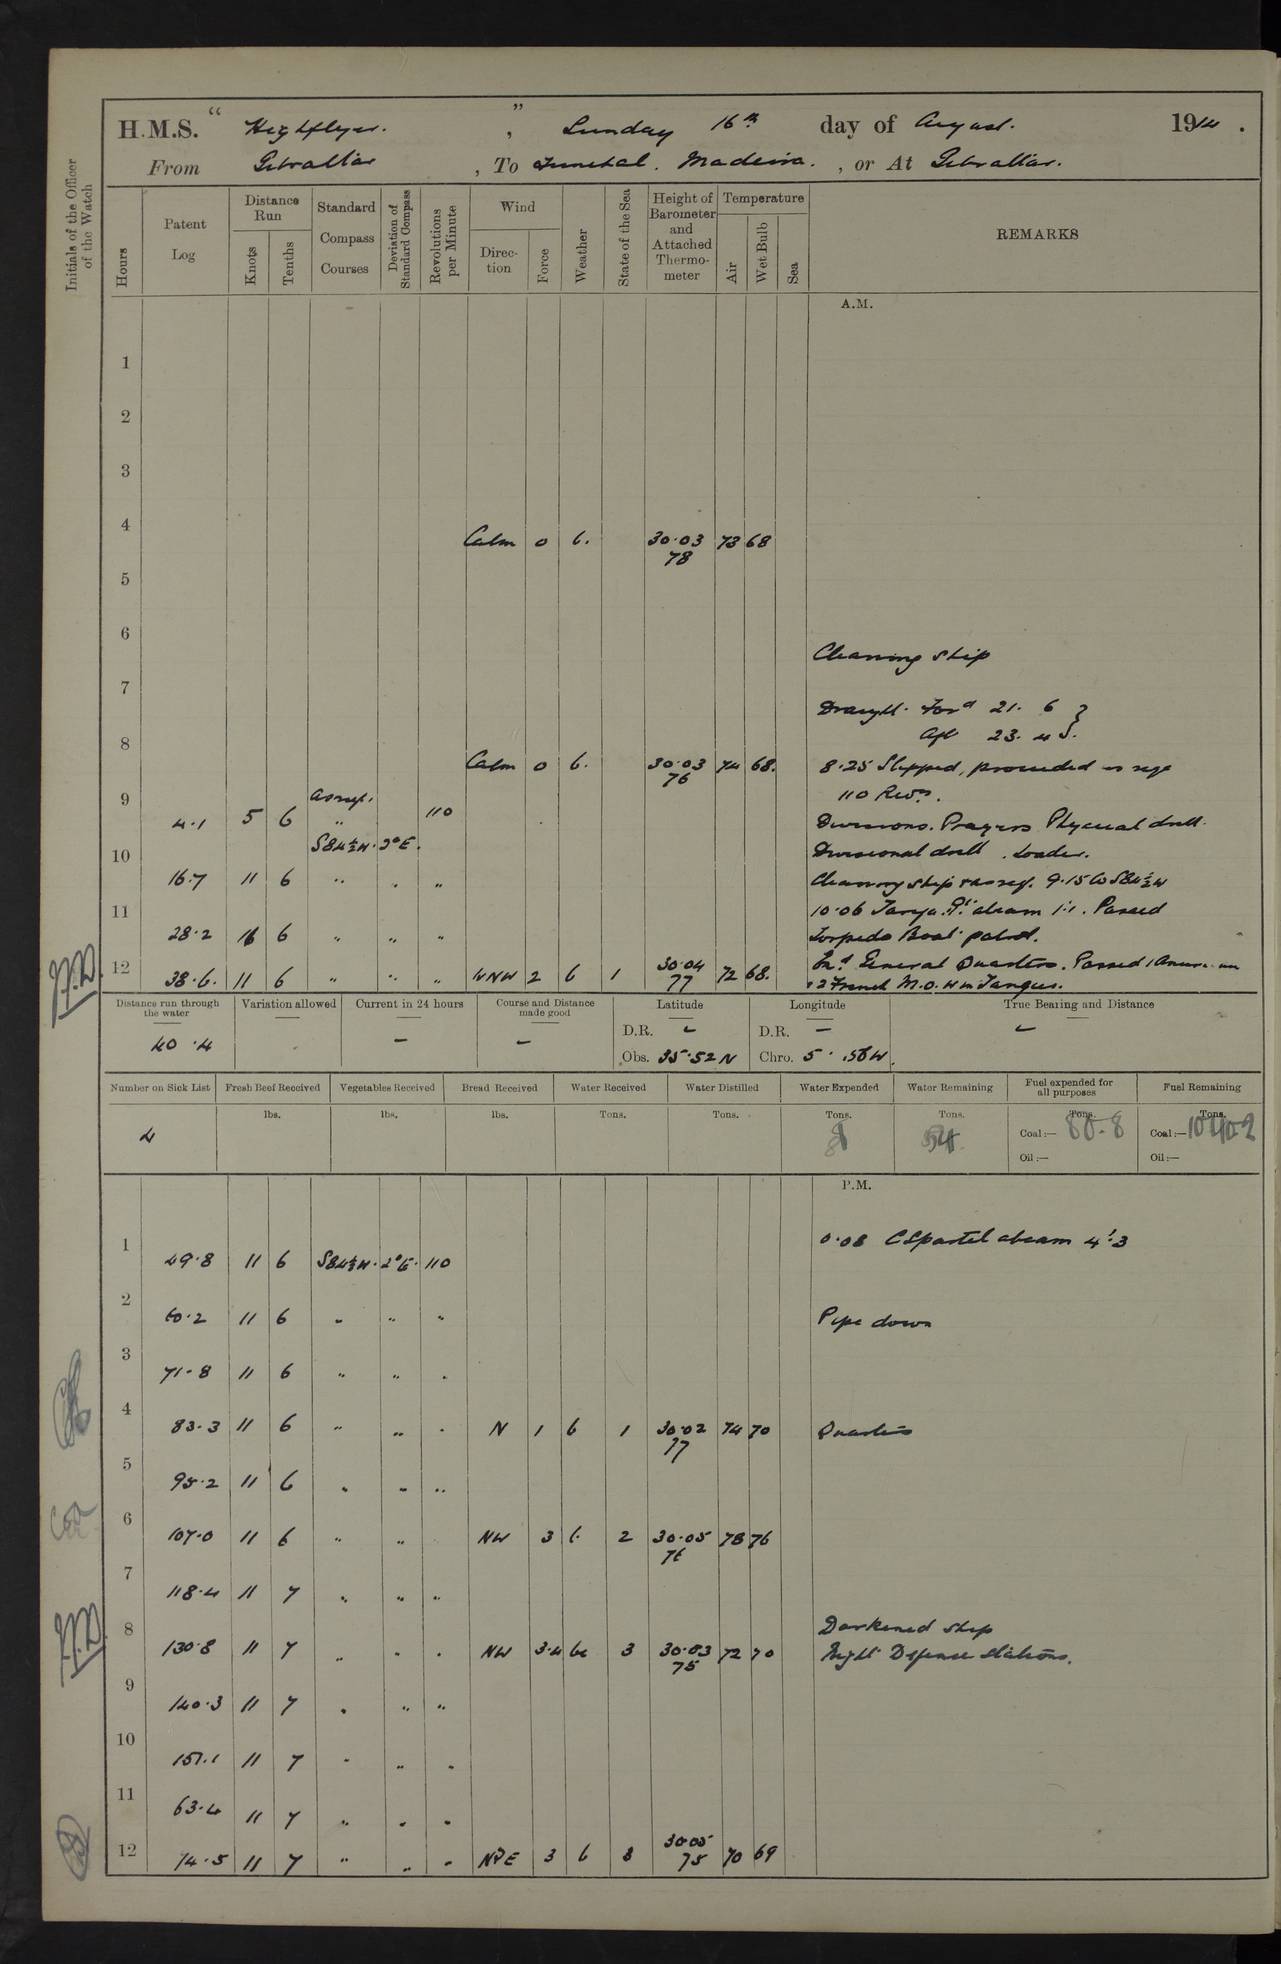 H.M.S. " Highflyer. " , Sunday 16th day of August. 1914.
From Gibraltar , To Funchal. Madeira. , or At Gibraltar.
Initials of the Officer of the Watch
Hours
Patent Log
Distance Run
Knots
Tenths
Standard Compass Courses
Deviation of Standard Compass
Revolutions per Minute
Wind
Direction
Force
Weather
State of the Sea
Height of Barometer and Attached Thermometer
Temperature
Air
Wet Bulb
Sea
REMARKS
A.M.
1
2
3
4
Calm 0 b. 30.03 73 68
78
5
6
Cleaning ship
7
Draught. For'd 21. 6
Aft 23. 4
8
Calm 0 b. 30.03 74 68.
76
8.25 Slipped, proceeded as req
110 Revs.
9
4.1 5 6 as req. " 110
Divisions. Prayers Physical drill.
S84½W. 2°E.
Divisional drill. Loader.
10
16.7 11 6 " " "
Cleaning ship & as req. 9.15 Co S84½W
10.06 Pt. abeam 1'.1. Passed
11
28.2 11 6 " " "
Torpedo Boat patrol.
12
38.6. 11 6 " " " WNW 2 b 1 30.04 72 68.
77
General Quarters. Passed
2 French M.O.W in Tangier.
Distance run through the water
40.4
Variation allowed
Current in 24 hours
—
Course and Distance made good
—
Latitude
D.R. —
Obs. 35.52 N
Longitude
D.R. —
Chro. 5. 56 W.
True Bearing and Distance
—
Number on Sick List
4
Fresh Beef Received
lbs.
Vegetables Received
lbs.
Bread Received
lbs.
Water Received
Tons.
Water Distilled
Tons.
Water Expended
Tons.
Water Remaining
Tons.
Fuel expended for all purposes
Tons.
Coal:— 80.8
Oil:—
Fuel Remaining
Tons.
Coal:—
Oil:—
P.M.
0.08 C Spartel abeam 4'.3
1
49.8 11 6 S84½W. 2°E. 110
2
60.2 11 6 " " "
Pipe down
3
71.8 11 6 " " "
4
83.3 11 6 " " " N 1 b 1 30.02 74 70
77
Quarters
5
95.2 11 6 " " "
6
107.0 11 6 " " NW 3 b. 2 30.05 78 76
76
7
118.4 11 7 " " "
8
Darkened ship
130.8 11 7 " " " NW 3.4 bc 3 30.03 72 70
75
Night Defence stations.
9
140.3 11 7 " " "
10
151.1 11 7 " " "
11
63.4 11 7 " " "
12
74.5 11 7 " " " 3 b 3 30.05 70 69
75